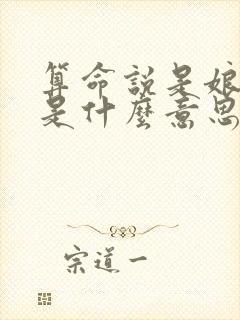 算命說是娘
是什麼意思
宗道一